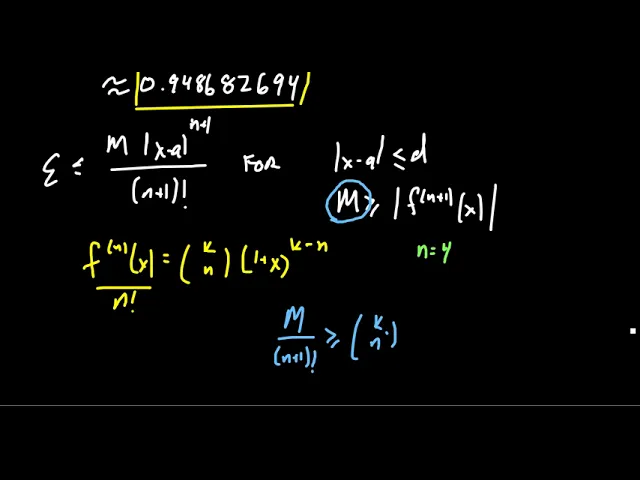 ≈ |0.948682694|
ε ≤ M |x-a|^{n+1} / (n+1)! FOR |x-a| ≤ d
M ≥ |f^{(n+1)}(x)|
f^{(n)}(x) / n! = (k n) (1+x)^{k-n}
n=4
M / (n+1)! ≥ (k n)